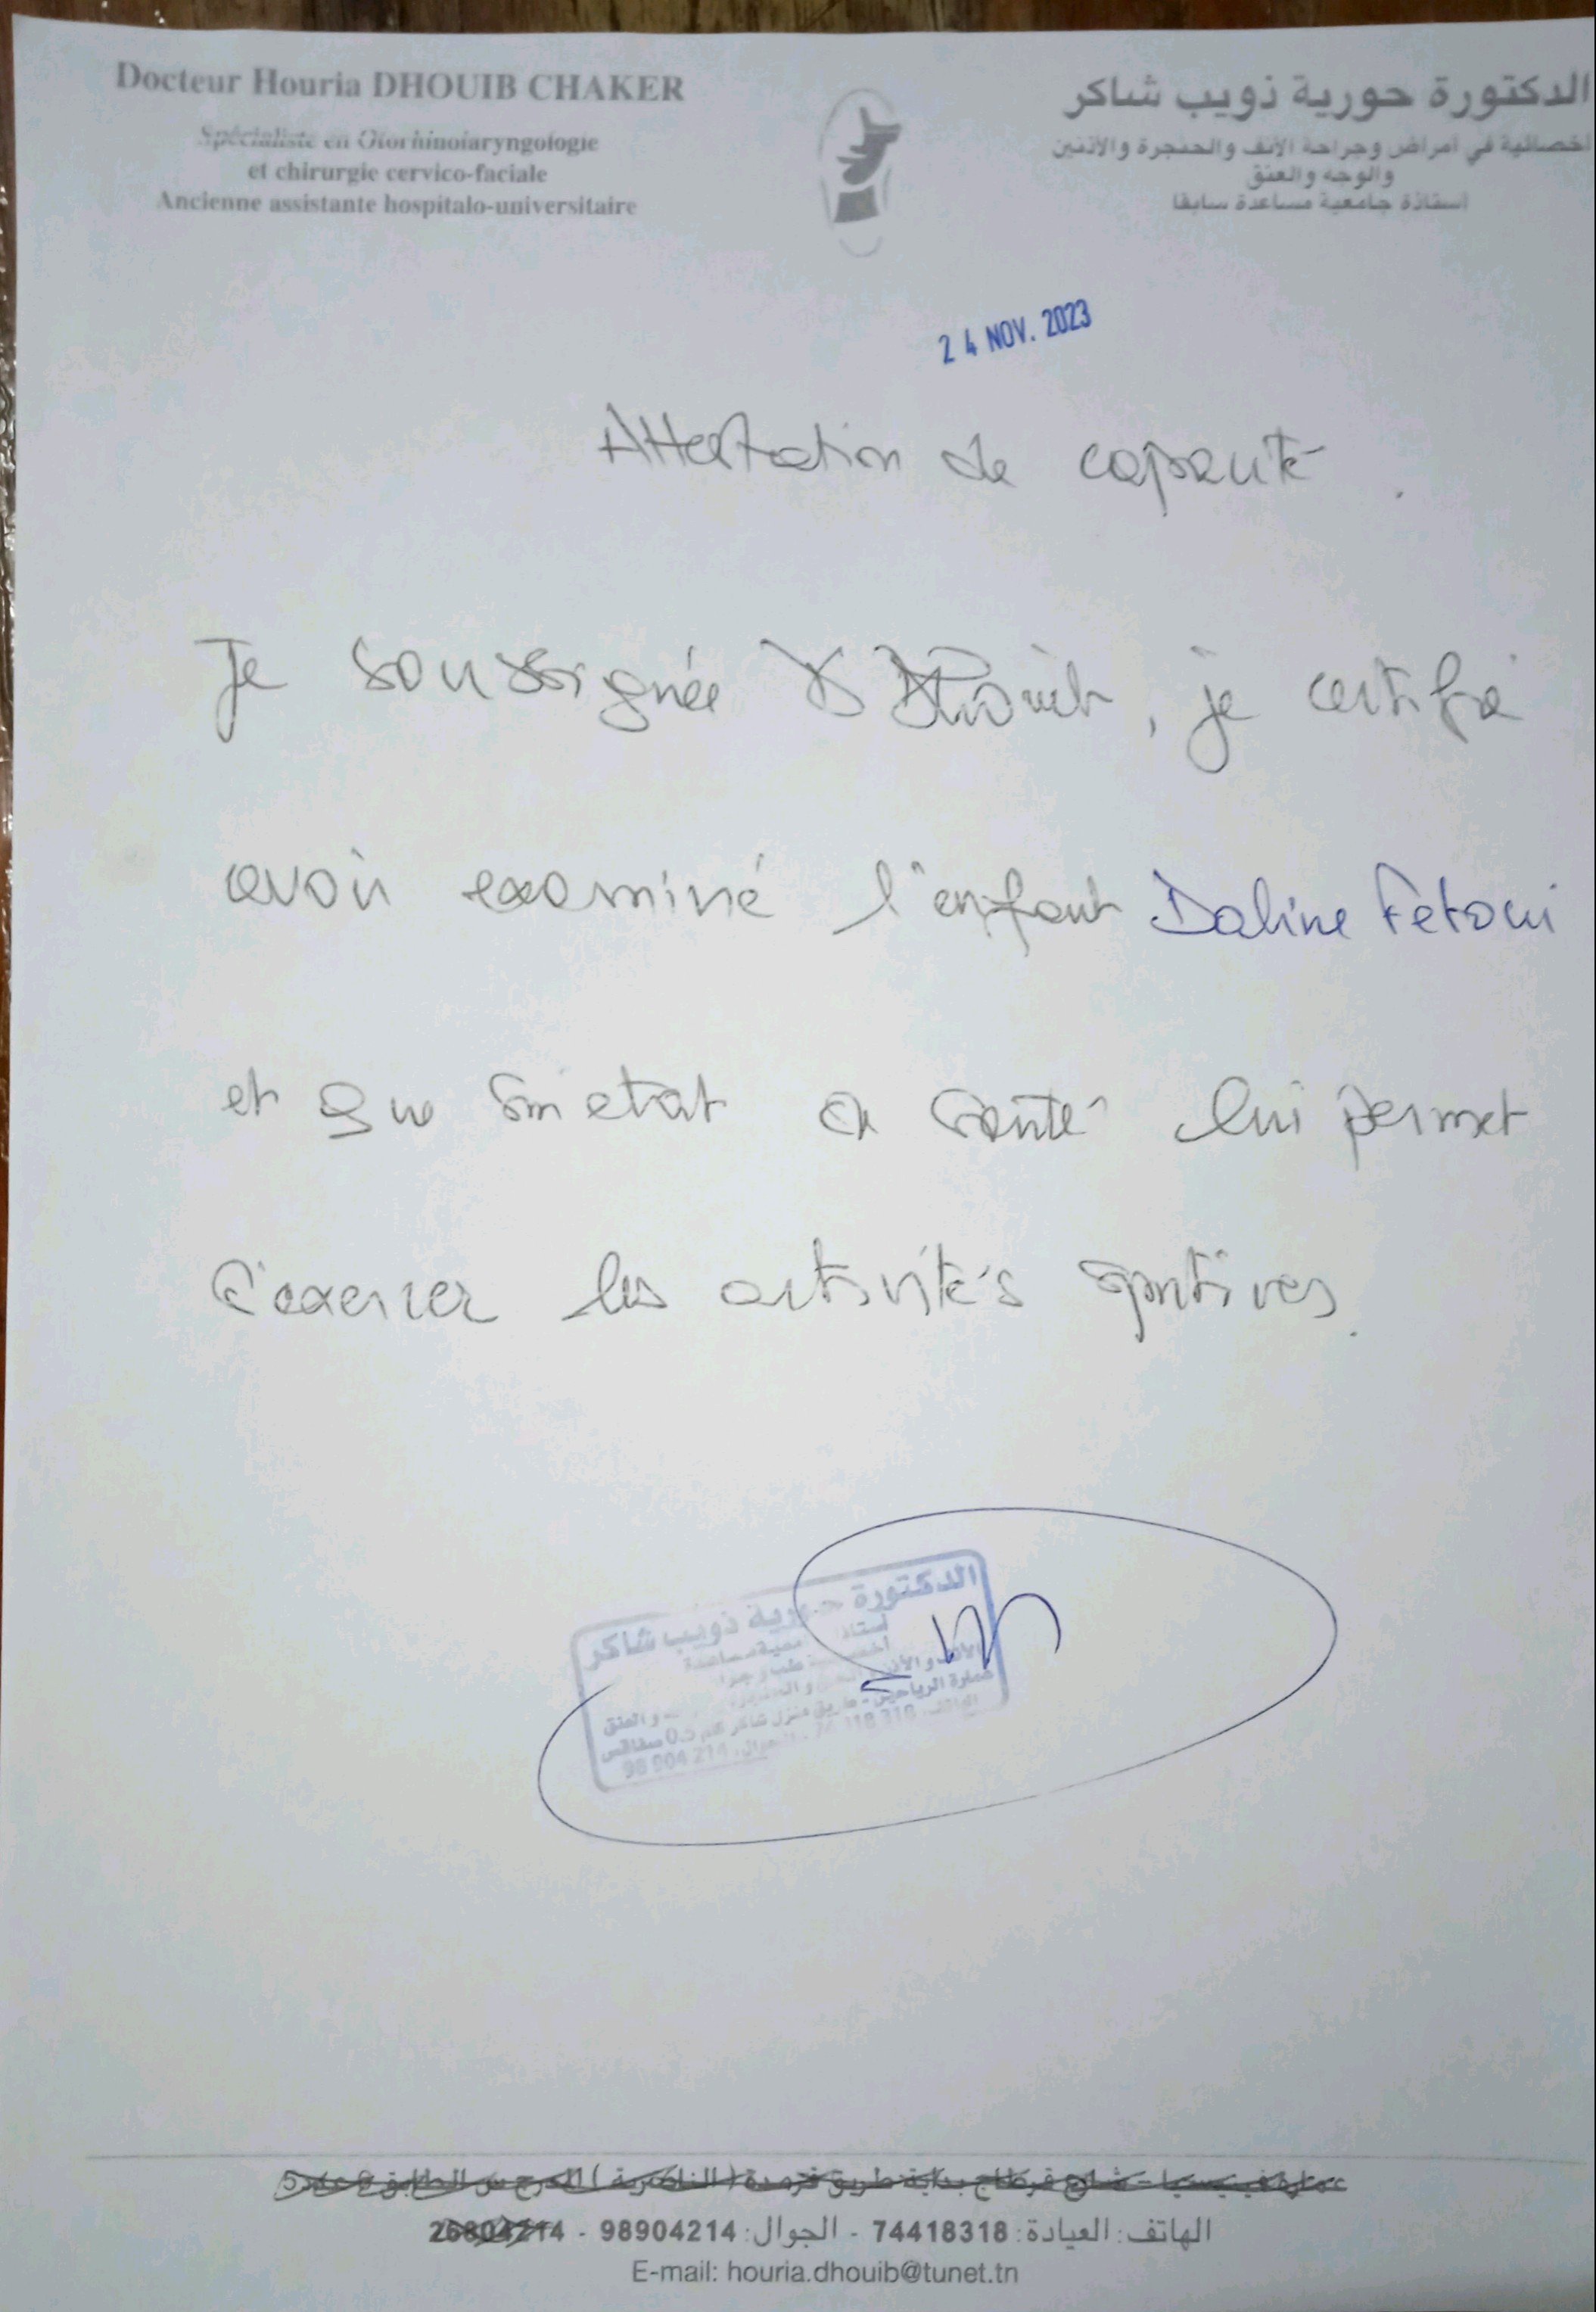 Docteur Houria DHOUIB CHAKER
Spécialiste en Otorhinolaryngologie
et chirurgie cervico-faciale
Ancienne assistante hospitalo-universitaire
الدكتورة حورية ذويب شاكر
أخصائية في أمراض وجراحة الأنف والحنجرة والأذنين
والوجه والعنق
أستاذة جامعية مساعدة سابقا
24 NOV. 2023
Attestation de capacité.
Je soussignée Dr Dhouib, je certifie
avoir examiné l'enfant Daline Fetoui
et que son etat de santé lui permet
d'exercer les activités sportives.
الدكتورة حورية ذويب شاكر
و العنق
عمارة الرياحين - طريق منزل شاكر كم 0.5 صفاقس
الجوال: 98 904 214
الهاتف: العيادة: 74418318 - الجوال: 98904214 - 26804214
E-mail: houria.dhouib@tunet.tn